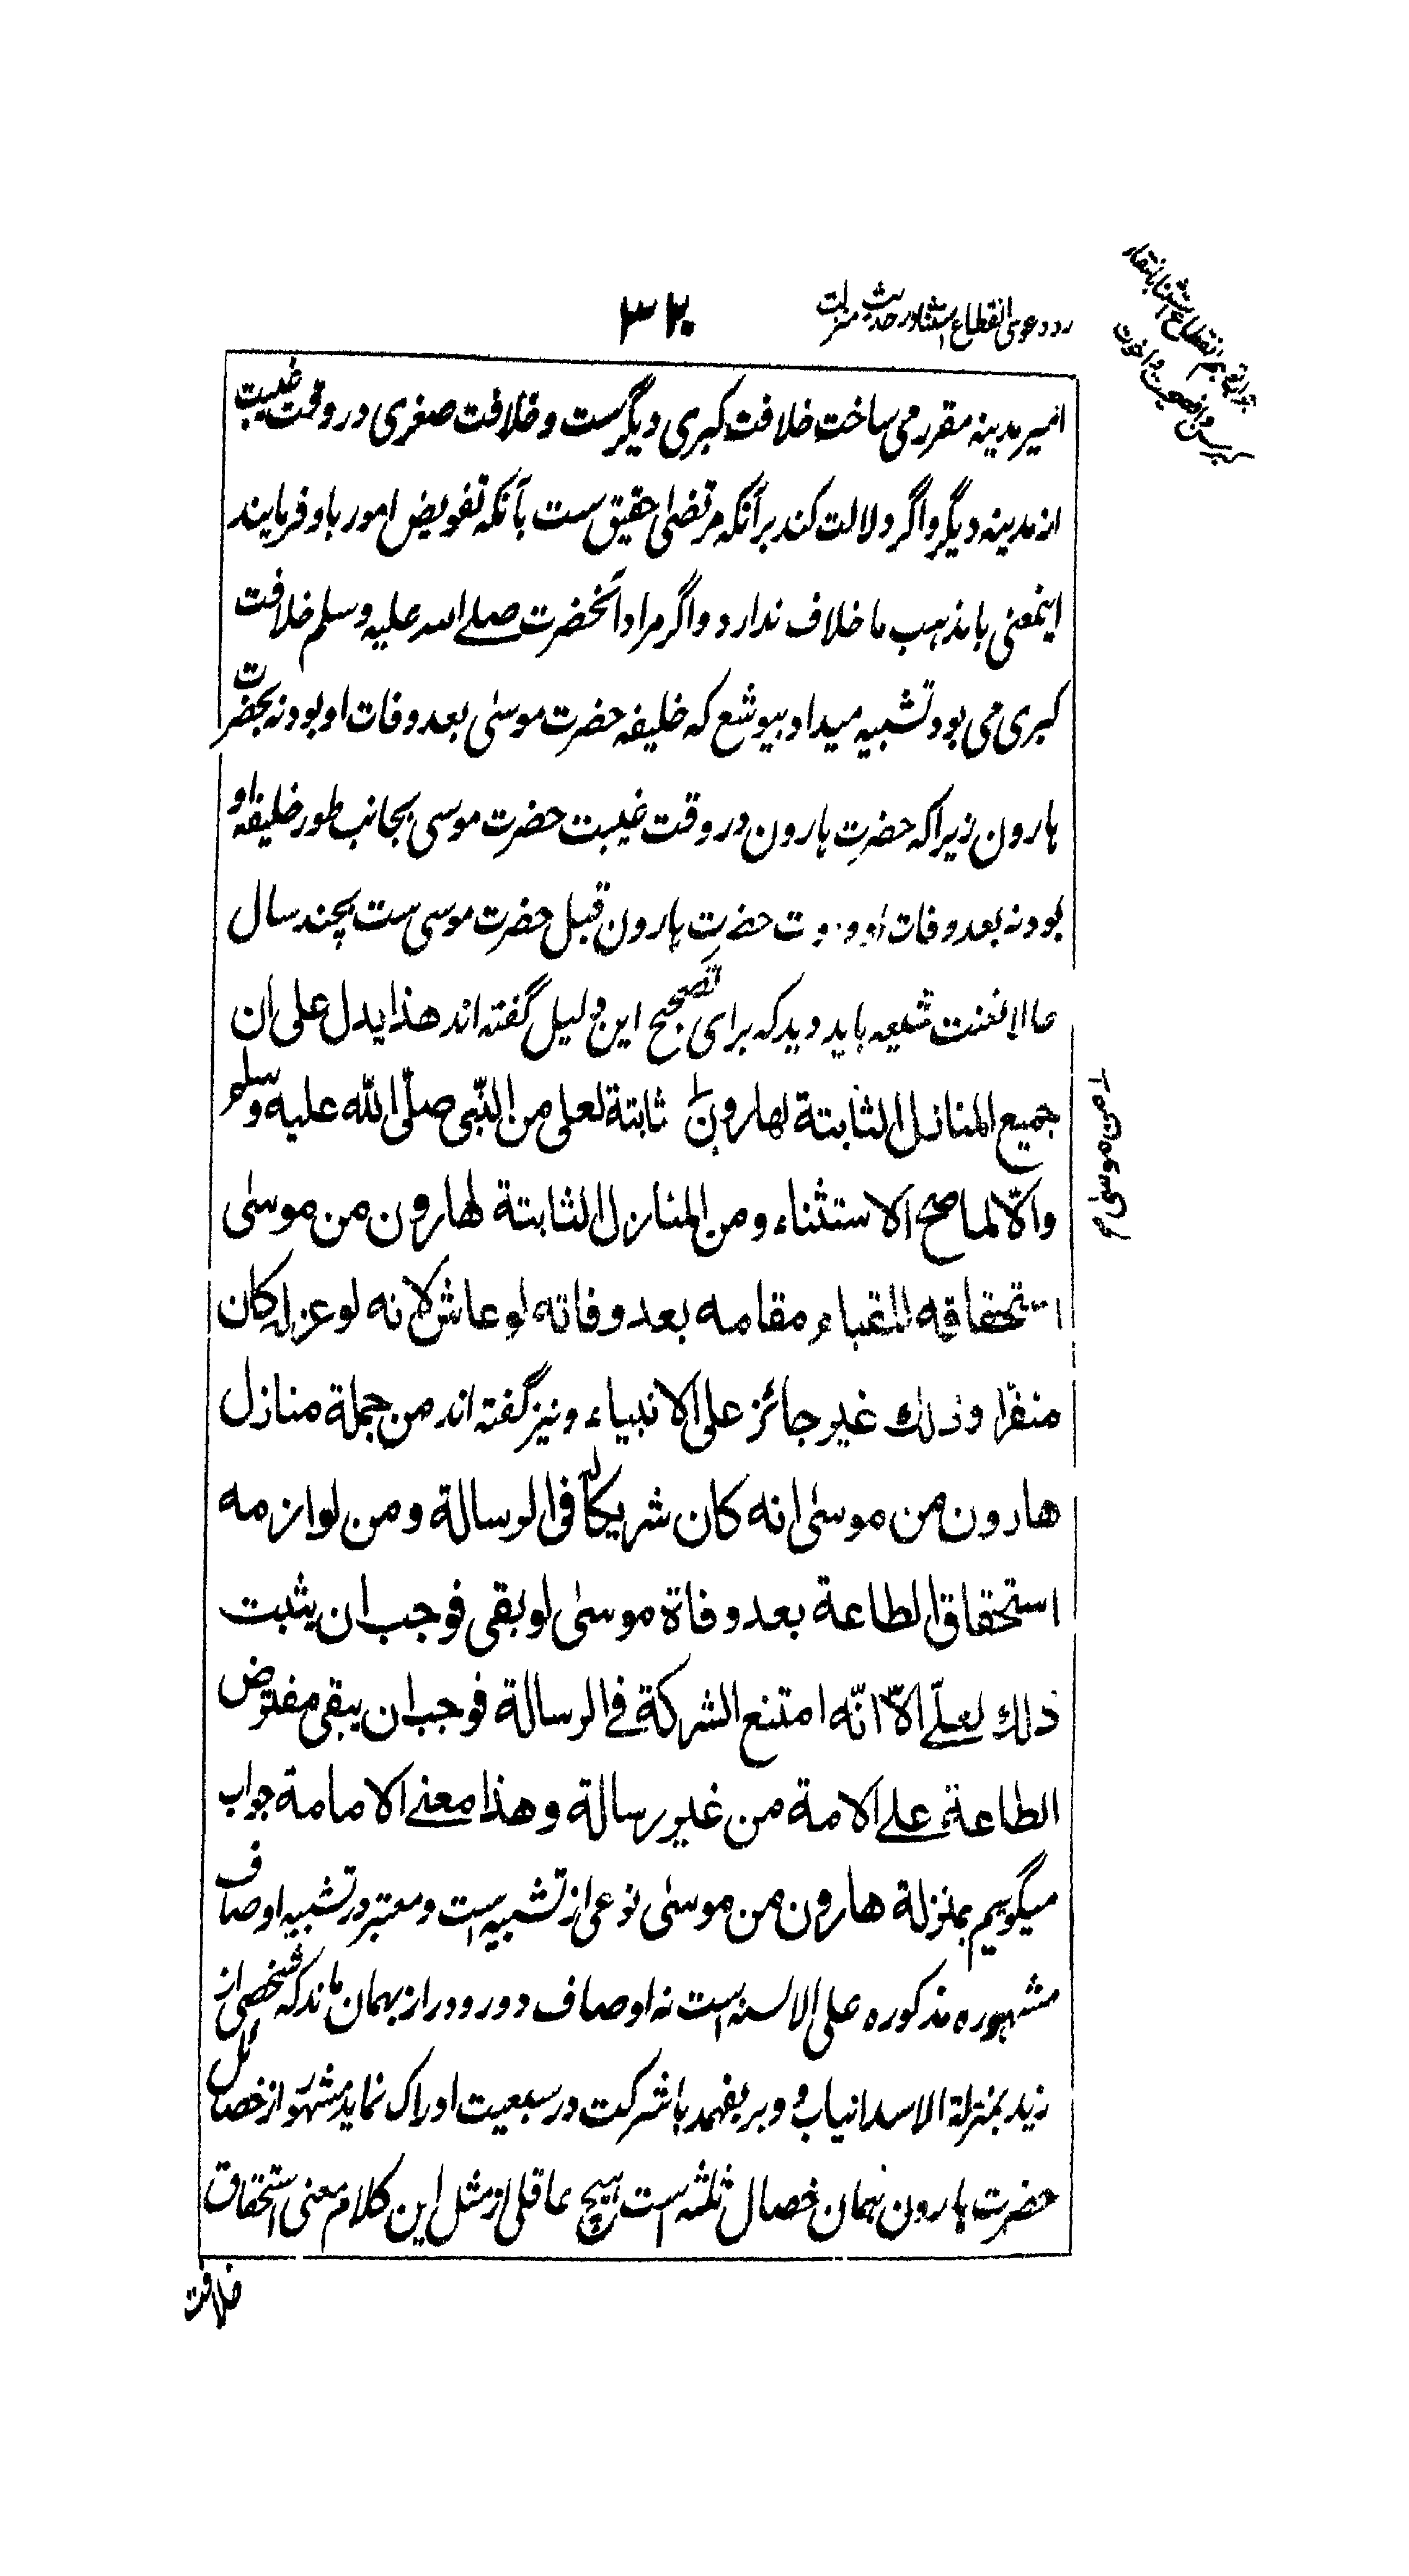 رد دعوی انقطاع استثنا در حدیث منزلت
۳۲۰
امیر مدینه مقرر می ساخت خلافت کبری دیگرست و خلافت صغری در وقت غیبت
از مدینه دیگر و اگر دلالت کند بر آنکه مرتضی حقیق ست بآنکه تفویض امور باو فرمایند
اینمعنی با مذهب ما خلاف ندارد و اگر مراد آنحضرت صلے الله علیه وسلم خلافت
کبری می بود تشبیه میداد بیوشع که خلیفه حضرت موسیٰ بعد وفات او بود نه بحضرت
هارون زیراکه حضرت هارون در وقت غیبت حضرت موسی بجانب طور خلیفه او
بود نه بعد وفات او و حضرت هارون قبل حضرت موسی ست بچند سال
حالا تعنت شیعه باید دید که برای تصحیح این دلیل گفته اند هذا یدل علی ان
جمیع المنازل الثابتة لهارون ثابتة لعلی من النّبی صلّی اللّه علیه وسلم
والّا لما صح الاستثناء ومن المنازل الثابتة لهارون من موسیٰ
استحقاقه للقیام مقامه بعد وفاته لو عاش لانه لو عزل کان
منفّرا وذلك غیر جائز علی الانبیاء و نیز گفته اند من جملة منازل
هارون من موسیٰ انه کان شریکا له فی الرسالة ومن لوازمه
استحقاق الطاعة بعد وفاة موسیٰ لو بقی فوجب ان یثبت
ذلك لعلیّ الّا انّه امتنع الشرکة فے الرسالة فوجب ان یبقی مفترض
الطاعة علے الامة من غیر رسالة وهذا معنے الامامة جواب
میگوییم بمنزلة هارون من موسیٰ نوعی از تشبیه است و معتبر در تشبیه اوصاف
مشهوره مذکوره علی الالسنه است نه اوصاف دور و دراز بهمان ماند که شخصی از
زید بمنزلة الاسد انیاب و وبر بفهمد یا شرکت در سبعیت ادراک نماید مشهور از خصائل
حضرت هارون همان خصال ثلثه است هیچ عاقلی از مثل این کلام معنی استحقاق
خلافت